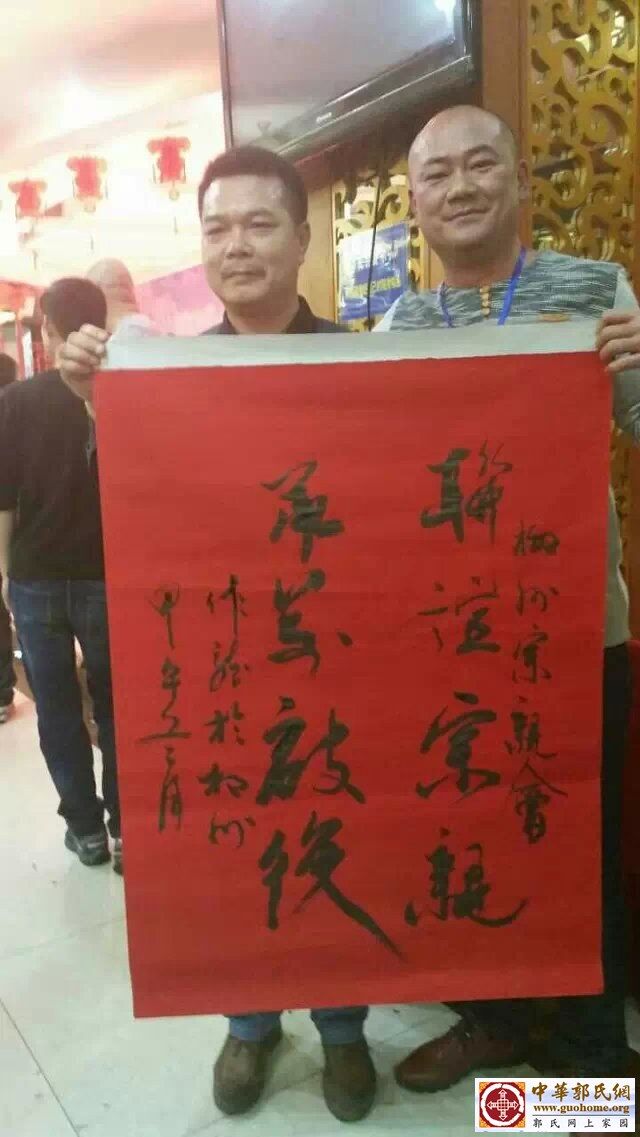 柳州宗親會
聯誼宗親
承前啟後
於柳州
甲午 二月
中華郭氏網
www.guohome.org
郭氏网上家园